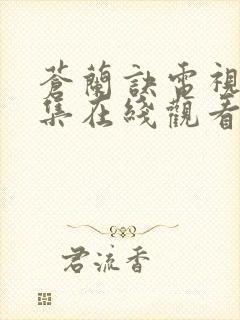 蒼蘭訣電視
集在綫觀看
君流香